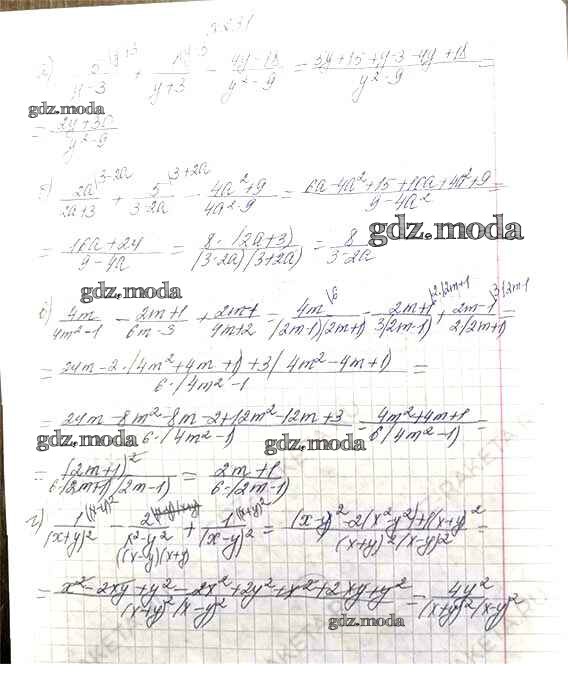 а) y-3 + y+3 - 4y-18 / y²-9 = 5y+15+y-3-4y+18 / y²-9 =
gdz.moda
= 2y+30 / y²-9
б) 2a \3-2a / 2a+3 + 5 \3+2a / 3-2a - 4a²+9 / 4a²-9 = 6a-4a²+15+10a+4a²+9 / 9-4a² =
gdz.moda
= 16a+24 / 9-4a = 8·(2a+3) / (3-2a)(3+2a) = 8 / 3-2a
gdz.moda
в) 4m / 4m²-1 - 2m+1 / 6m-3 + 2m-1 / 4m+2 = 4m \6 / (2m-1)(2m+1) - 2m+1 \2(2m+1 / 3(2m-1) + 2m-1 \3(2m-1 / 2(2m+1) =
= 24m-2·(4m²+4m+1)+3(4m²-4m+1) / 6·(4m²-1 =
= 24m-8m²-8m-2+12m²-12m+3 / 6·(4m²-1) = 4m²+4m+1 / 6(4m²-1) =
gdz.moda gdz.moda
= (2m+1)² / 6·(2m+1)(2m-1) = 2m+1 / 6·(2m-1)
г) 1 \(x-y)² / (x+y)² - 2 / x²-y² (x-y)(x+y) + 1 \(x+y)² / (x-y)² = (x-y)²-2(x²-y²)+(x+y)² / (x+y)²(x-y)² =
= x²-2xy+y²-2x²+2y²+x²+2xy+y² / (x+y)²(x-y)² = 4y² / (x+y)²(x-y)²
gdz.moda